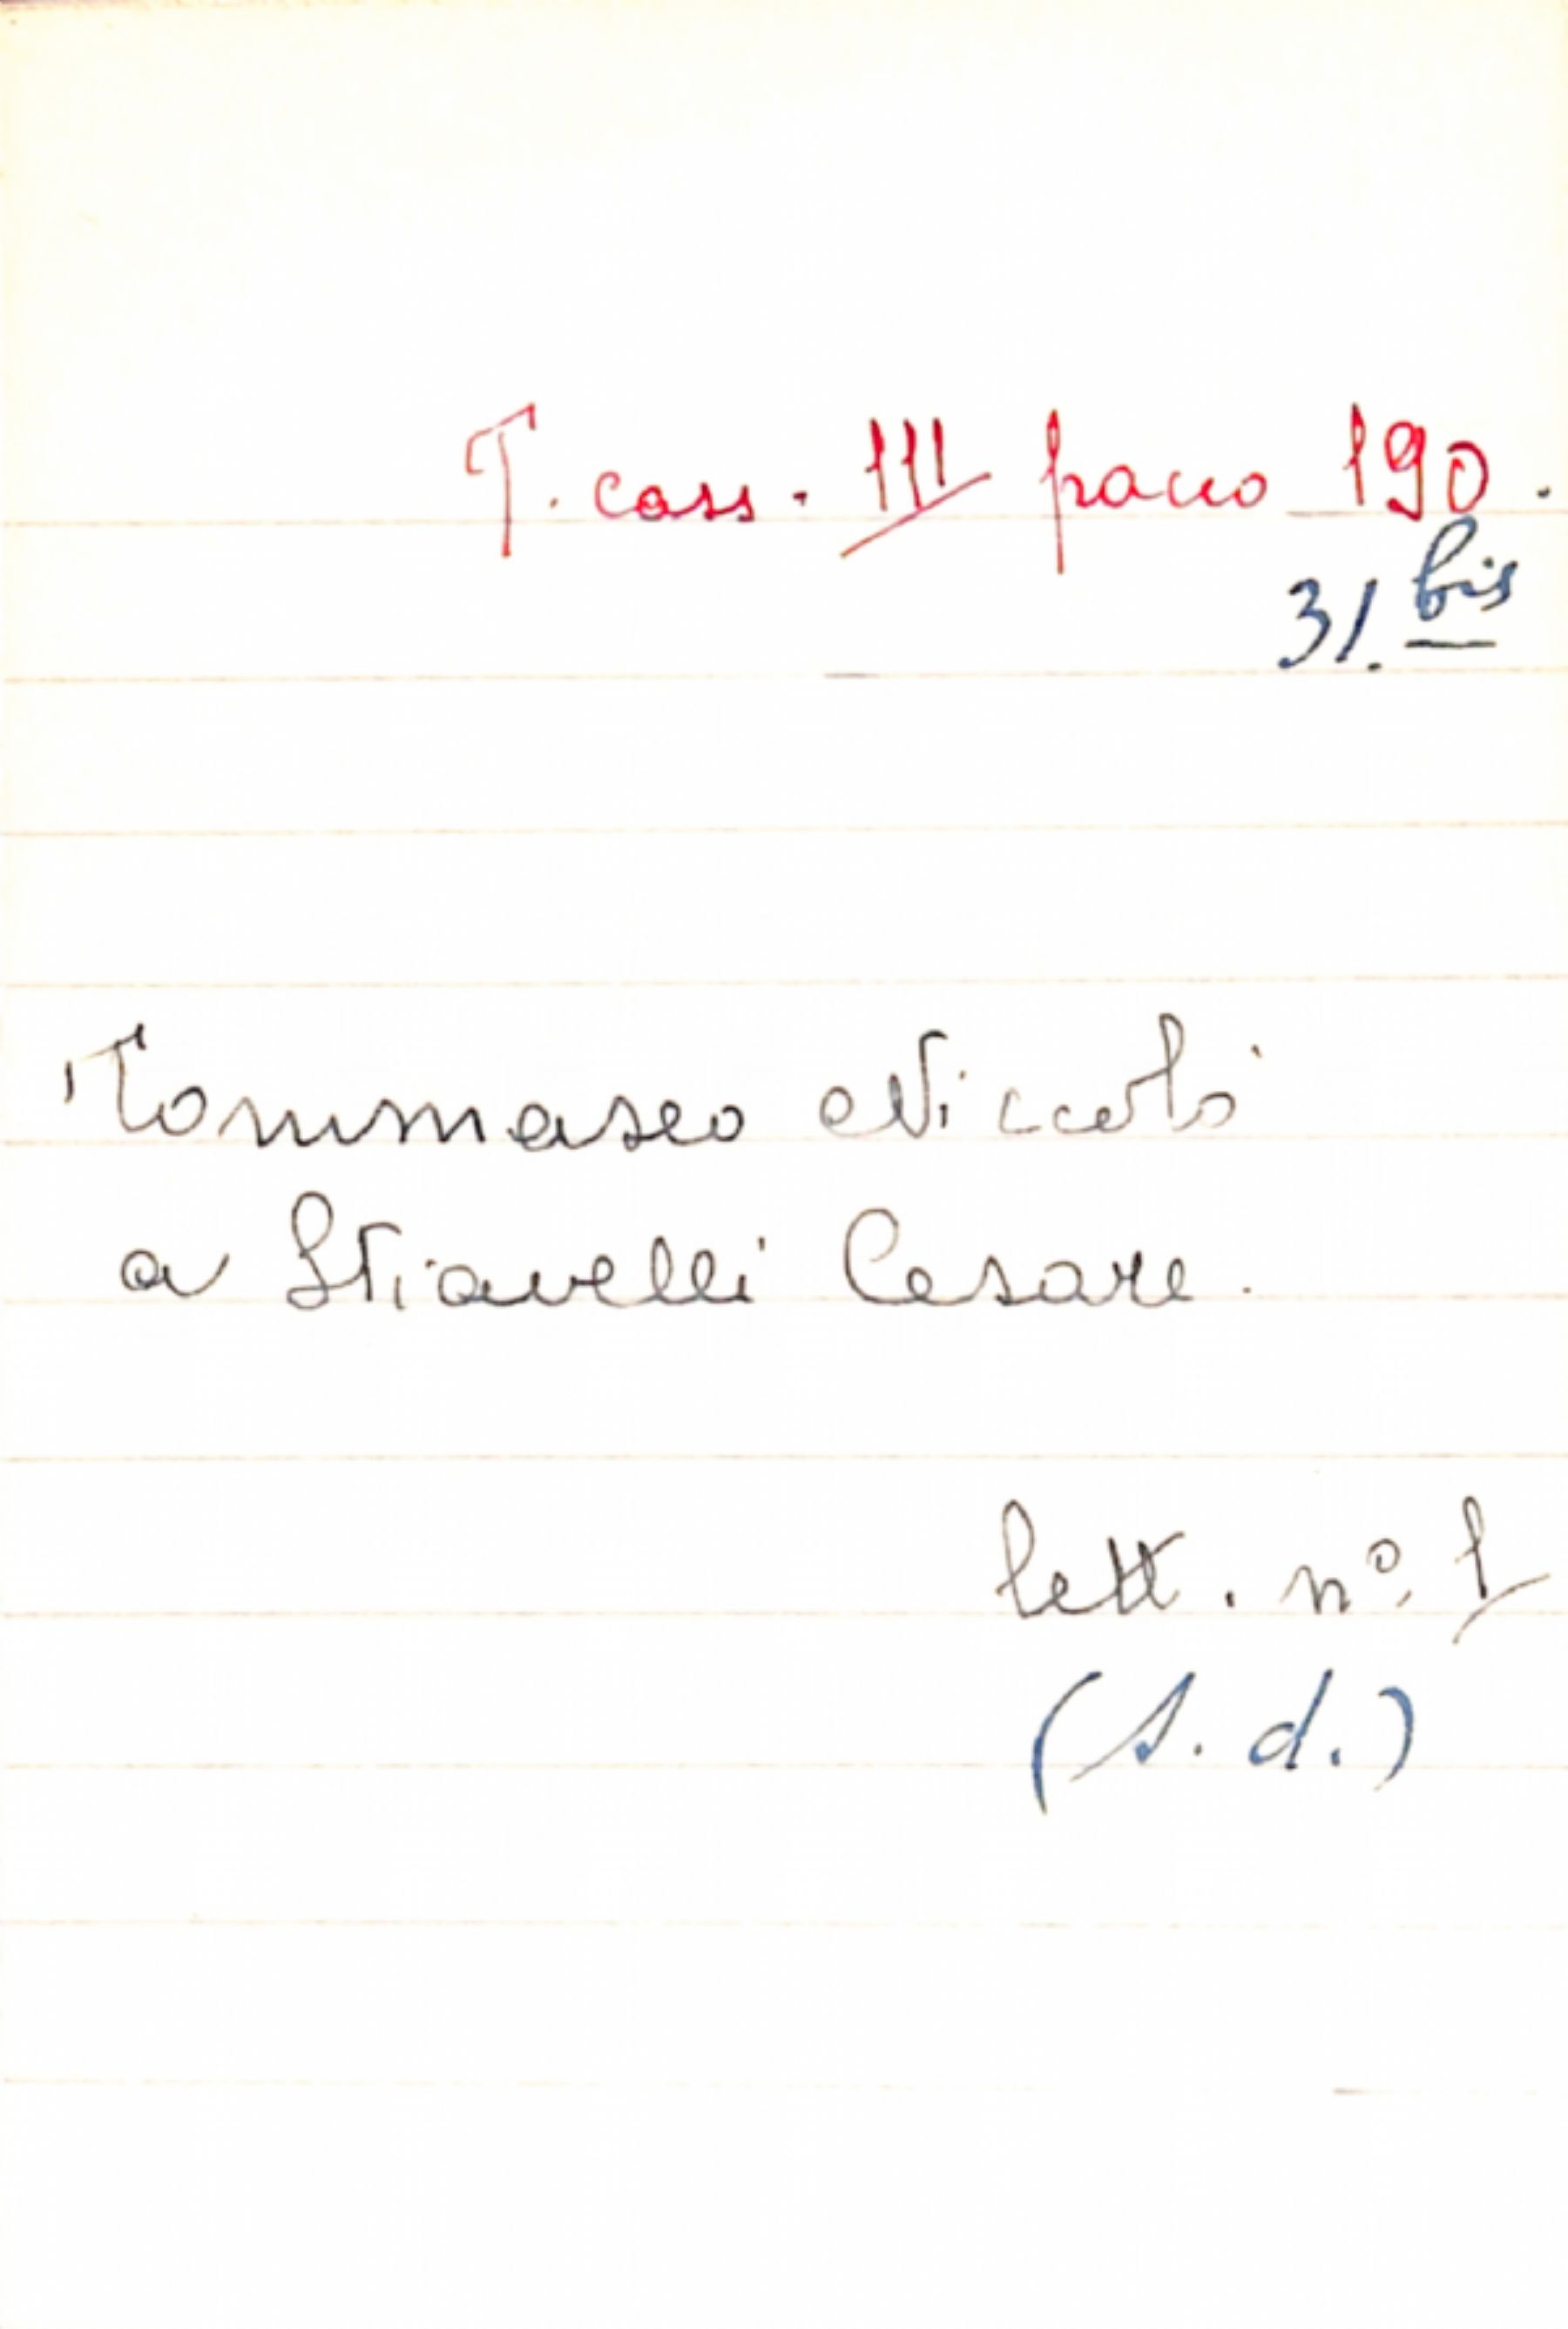 T. cass. III pacco 190.
31. bis
Tommaseo Niccolò
a Stiavelli Cesare.
lett. nº 1
(s. d.)